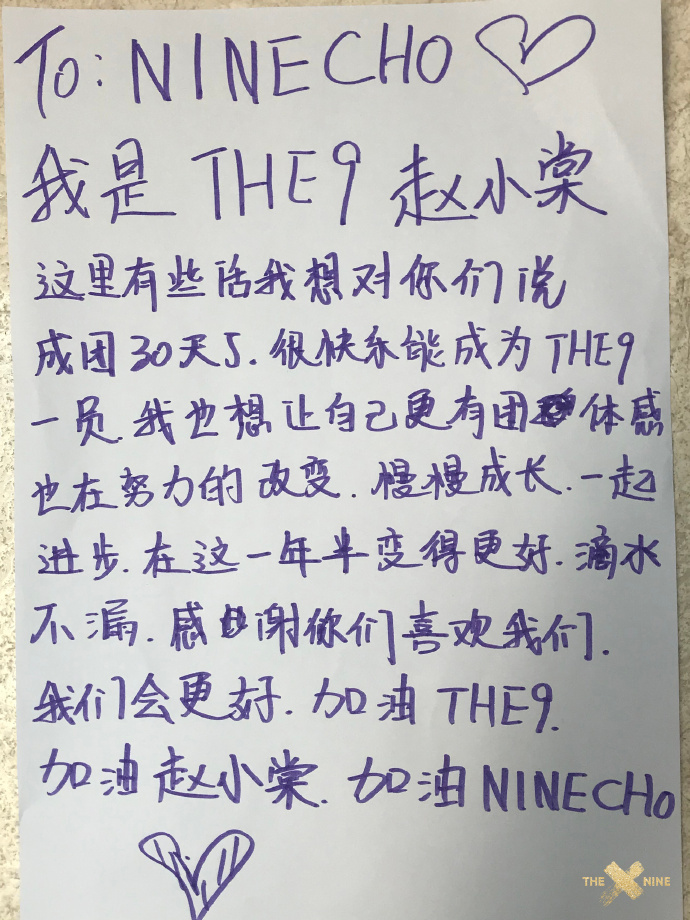 To: NINECHO
我是 THE9 赵小棠
这里有些话我想对你们说
成团30天了.很快乐能成为THE9
一员.我也想让自己更有团体感
也在努力的改变.慢慢成长.一起
进步.在这一年半变得更好.滴水
不漏.感谢你们喜欢我们.
我们会更好.加油 THE9.
加油赵小棠.加油NINECHO
THE NINE